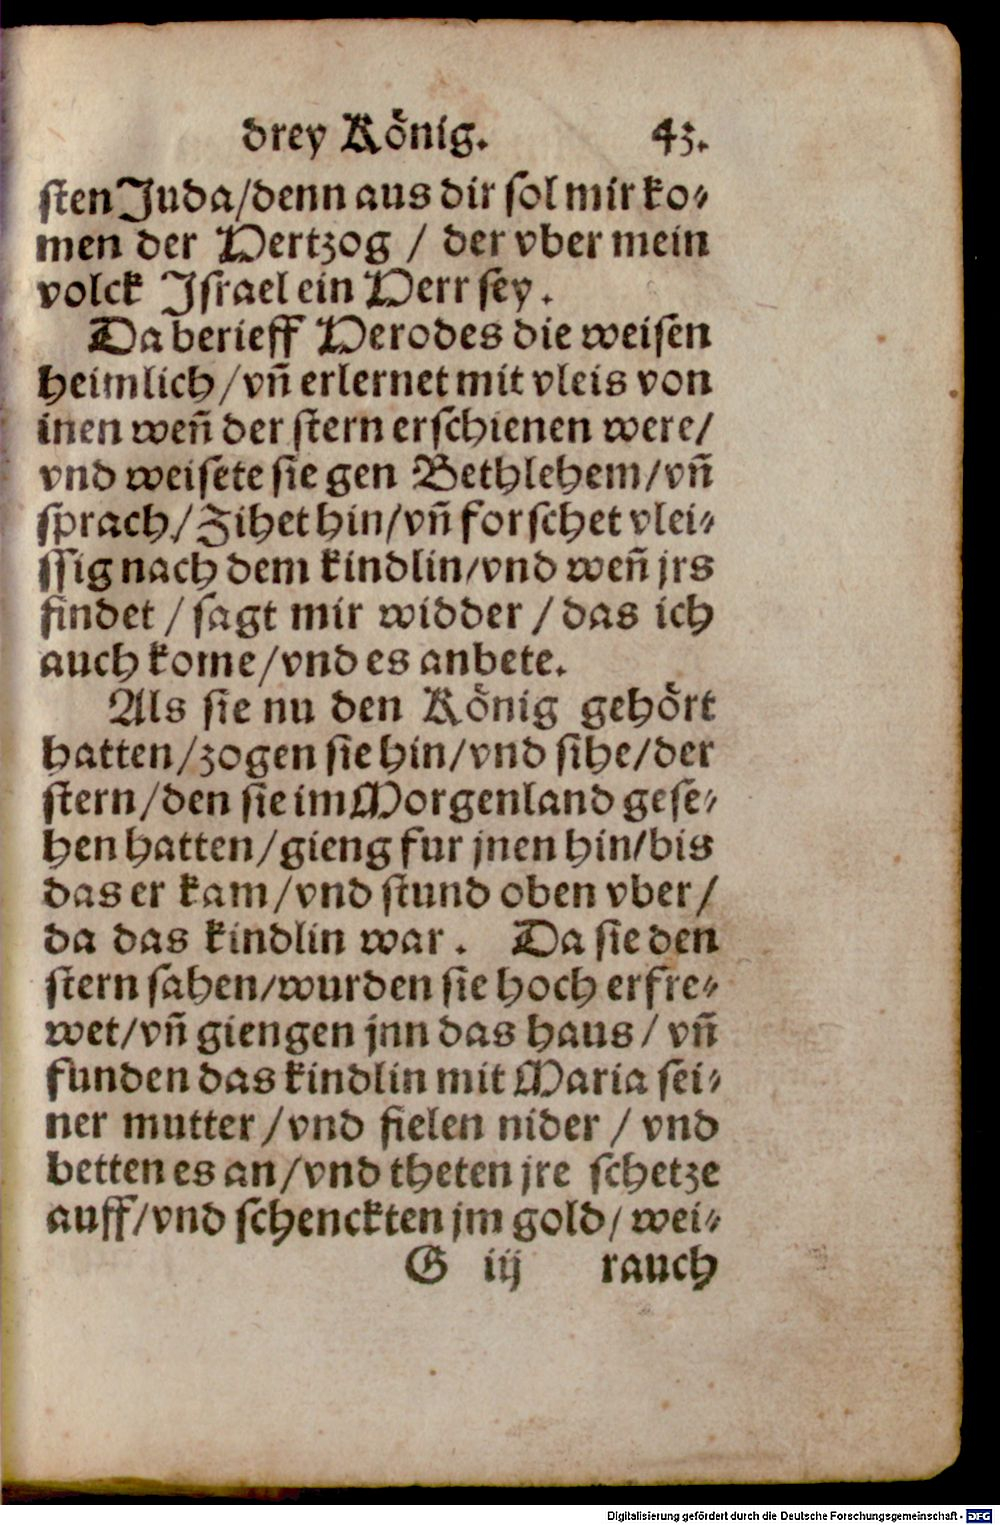 drey König. 43.
sten Juda/denn aus dir sol mir ko⸗
men der Hertzog / der vber mein
volck Israel ein Herr sey.
Da berieff Herodes die weisen
heimlich/vñ erlernet mit vleis von
inen weñ der stern erschienen were/
vnd weisete sie gen Bethlehem/vñ
sprach/Zihet hin/vñ forschet vlei⸗
ssig nach dem kindlin/vnd weñ jrs
findet / sagt mir widder / das ich
auch kome/vnd es anbete.
Als sie nu den König gehört
hatten/zogen sie hin/vnd sihe/der
stern/den sie im Morgenland gese⸗
hen hatten/gieng fur jnen hin/bis
das er kam/vnd stund oben vber/
da das kindlin war. Da sie den
stern sahen/wurden sie hoch erfre⸗
wet/vñ giengen jnn das haus/ vñ
funden das kindlin mit Maria sei⸗
ner mutter /vnd fielen nider / vnd
betten es an/vnd theten jre schetze
auff/vnd schenckten jm gold/ wei⸗
G iij rauch
Digitalisierung gefördert durch die Deutsche Forschungsgemeinschaft - DFG